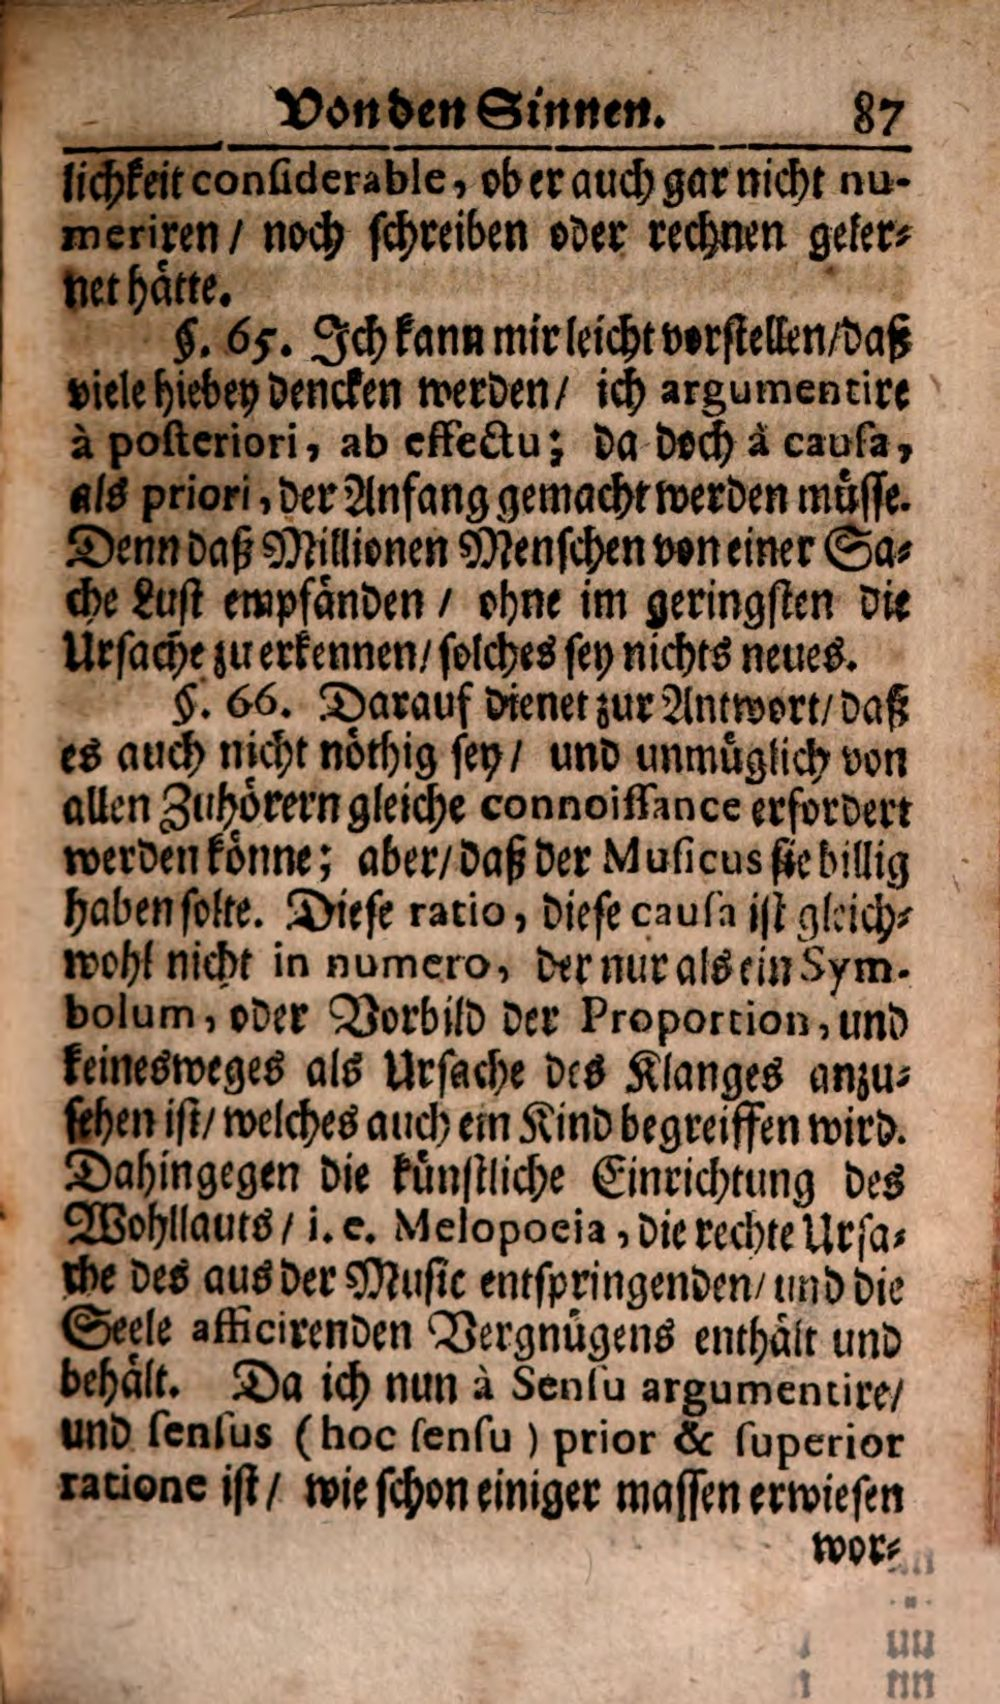 Von den Sinnen. 87
lichkeit considerable, ob er auch gar nicht nu-
meriren / noch schreiben oder rechnen geler-
net hätte.
§. 65. Ich kann mir leicht vorstellen / daß
viele hiebey dencken werden / ich argumentire
à posteriori, ab effectu; da doch à causa,
als priori, der Anfang gemacht werden müsse.
Denn daß Millionen Menschen von einer Sa-
che Lust empfänden / ohne im geringsten die
Ursache zu erkennen / solches sey nichts neues.
§. 66. Darauf dienet zur Antwort / daß
es auch nicht nöthig sey / und unmüglich von
allen Zuhörern gleiche connoissance erfordert
werden könne; aber / daß der Musicus sie billig
haben solte. Diese ratio, diese causa ist gleich-
wohl nicht in numero, der nur als ein Sym-
bolum, oder Vorbild der Proportion, und
keinesweges als Ursache des Klanges anzu-
sehen ist / welches auch ein Kind begreiffen wird.
Dahingegen die künstliche Einrichtung des
Wohllauts / i. e. Melopoeia, die rechte Ursa-
che des aus der Music entspringenden / und die
Seele afficirenden Vergnügens enthält und
behält. Da ich nun à Sensu argumentire /
und sensus (hoc sensu) prior & superior
ratione ist / wie schon einiger massen erwiesen
wor-